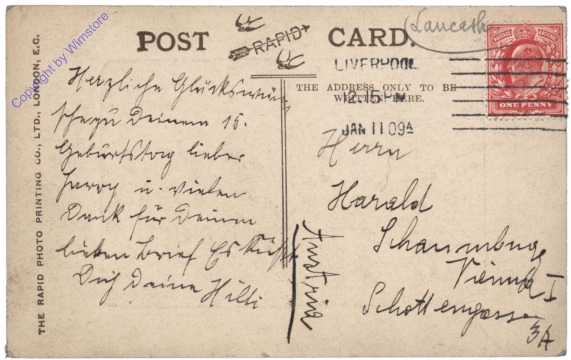 POST CARD.
RAPID
(Lancash
LIVERPOOL
12.15 PM
JAN 11 09
THE ADDRESS ONLY TO BE
WRITTEN HERE.
POSTAGE REVENUE
ONE PENNY
Herzliche Glückswün
sche zu Deinem 15.
Geburtstag lieber
Harry u. vielen
Dank für Deinen
lieben Brief Es küsst
Dich Deine Hilli
Herrn
Harald
Schaumburg
Vienna I
Schottengasse
3A
Austria
THE RAPID PHOTO PRINTING CO., LTD., LONDON, E.C.
Copyright by Wimstore